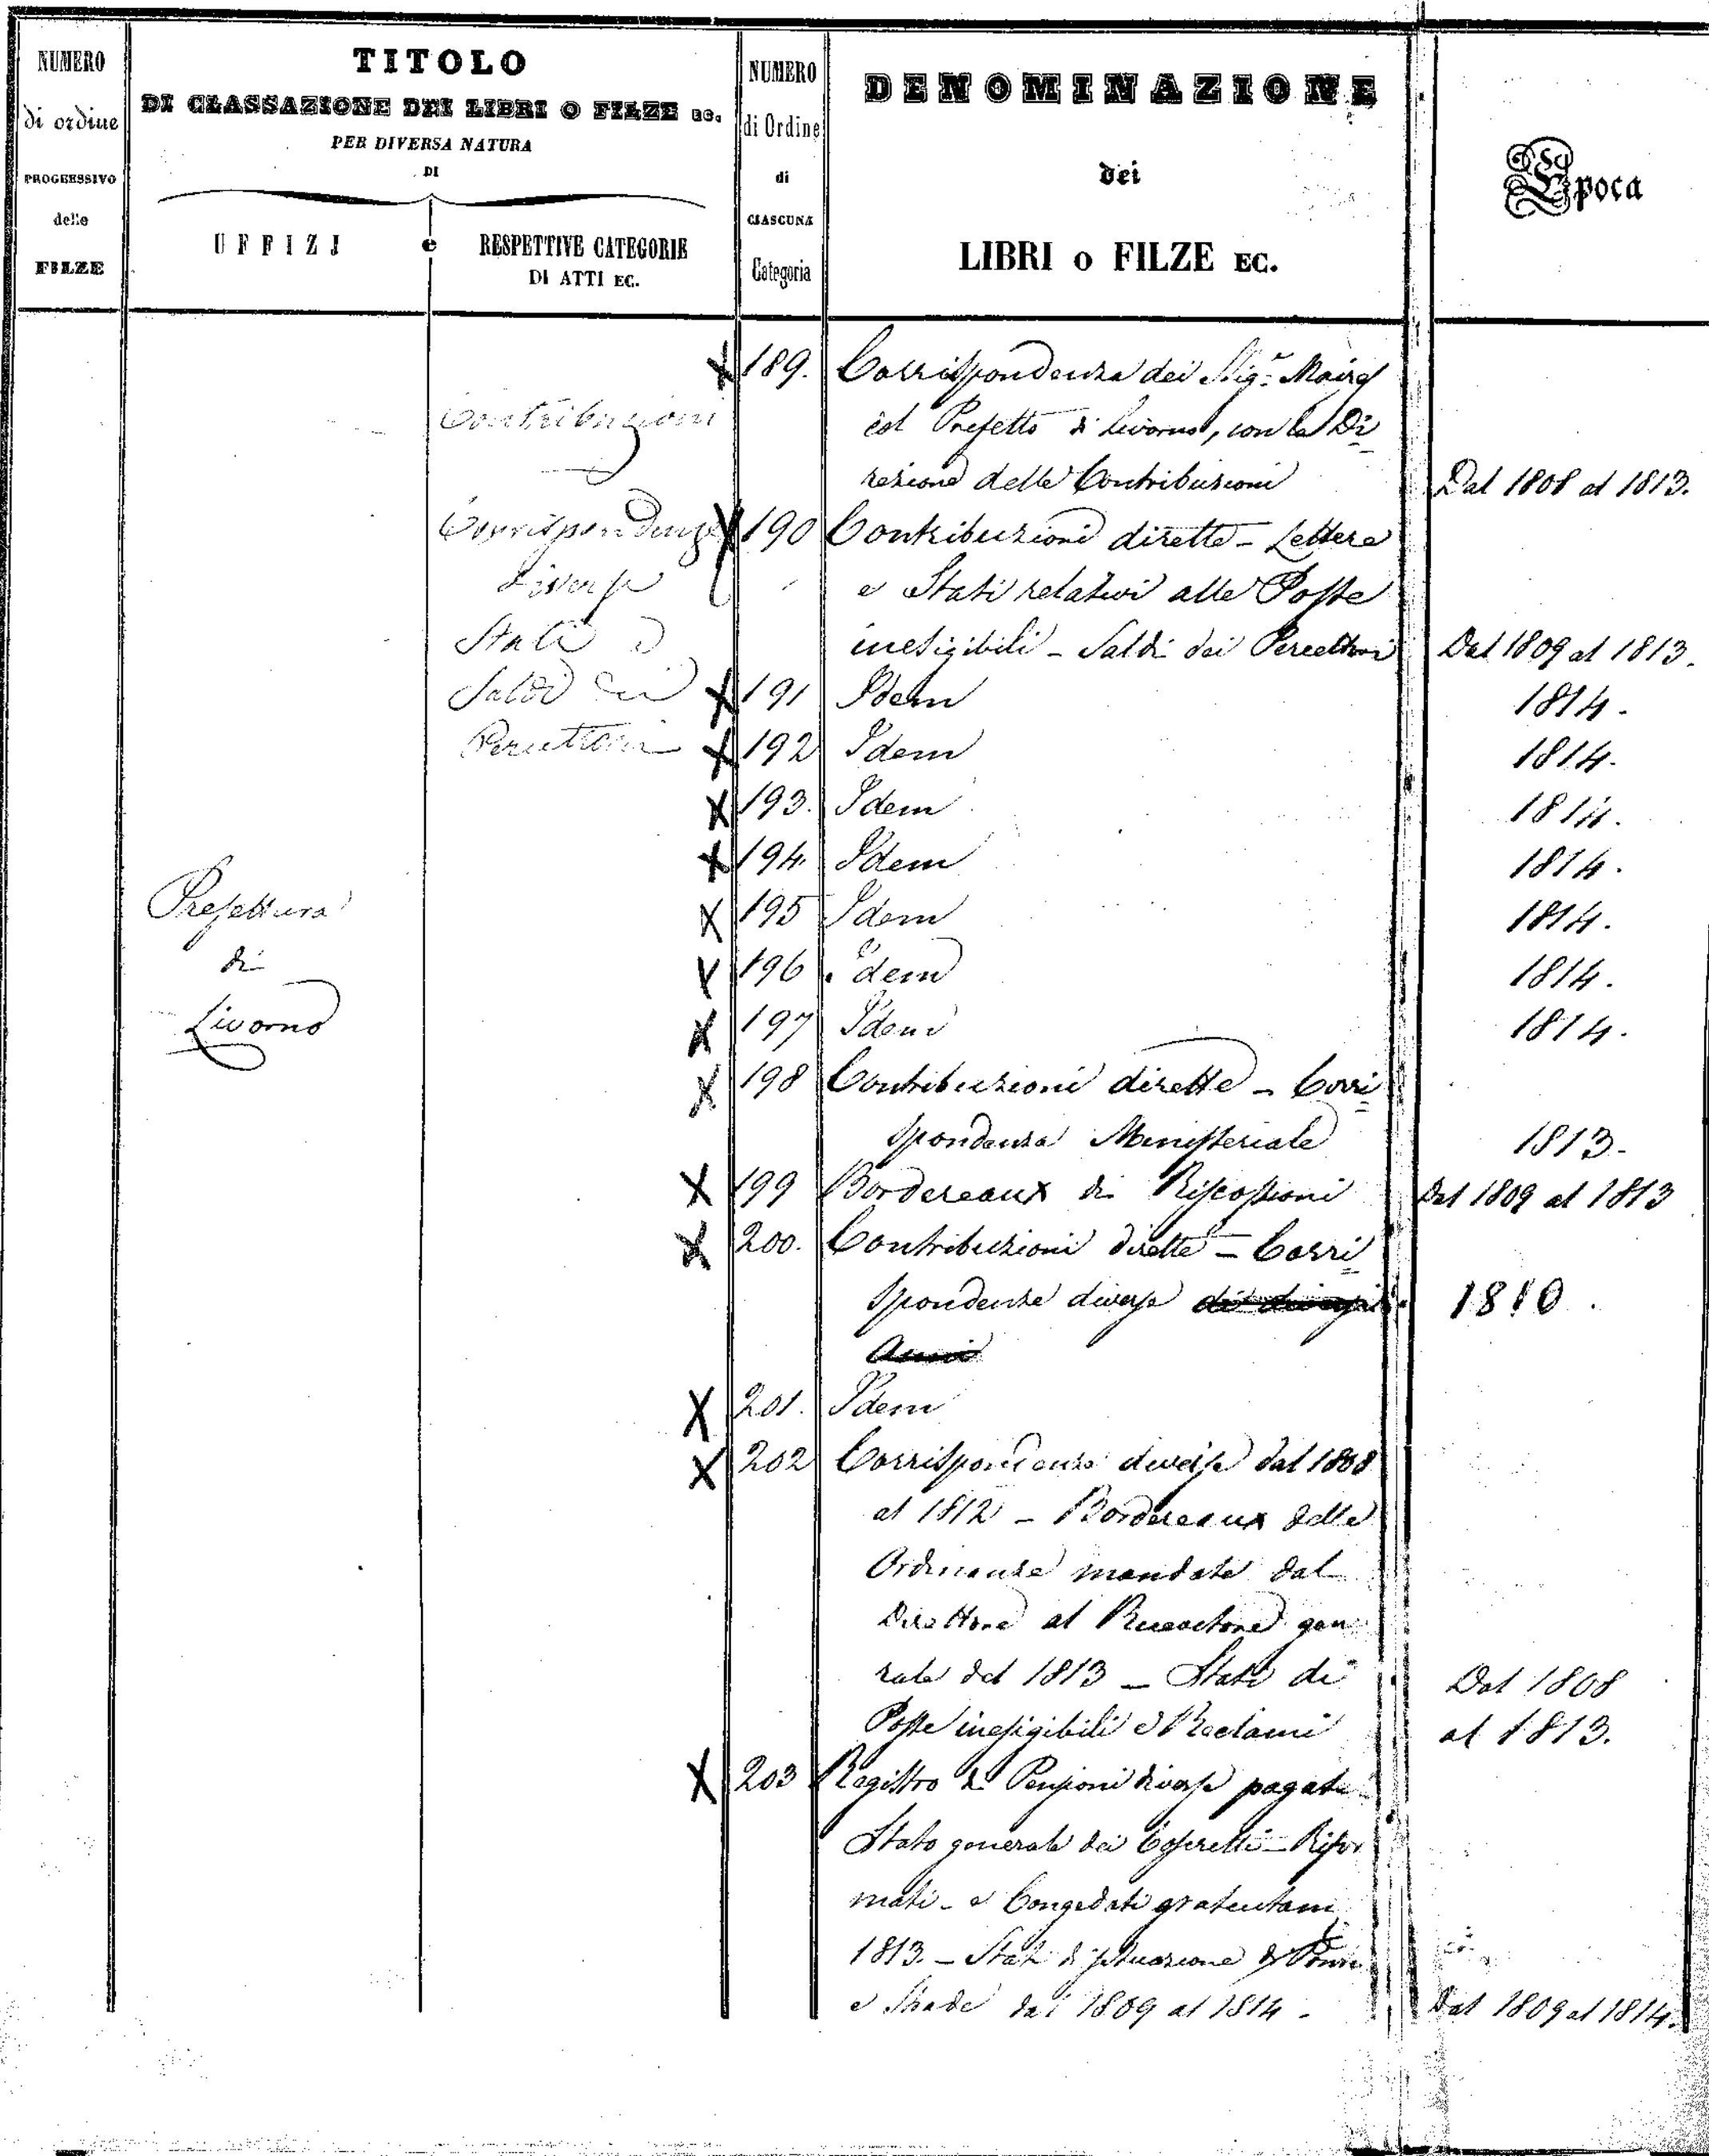 NUMERO
di ordine
PROGRESSIVO
delle
FILZE
TITOLO
DI CLASSAZIONE DEI LIBRI O FILZE EC.
PER DIVERSA NATURA
DI
UFFIZJ e RESPETTIVE CATEGORIE
DI ATTI EC.
NUMERO
di Ordine
di
CIASCUNA
Categoria
DENOMINAZIONE
dei
LIBRI o FILZE EC.
Epoca
Prefettura
di
Livorno
Contribuzioni
Corrispondenze
diverse
Stati e
Saldi dei
Percettori
X 189. Corrispondenza dei Sig.ri Maires
col Prefetto di Livorno, con la Di
rezione delle Contribuzioni Dal 1808 al 1813.
X 190 Contribuzioni dirette - Lettere
e Stati relativi alle Poste
inesigibili - Saldi dei Percettori Dal 1809 al 1813.
X 191 Idem 1814.
X 192 Idem 1814.
X 193. Idem 1814.
X 194. Idem 1814.
X 195 Idem 1814.
X 196 Idem 1814.
X 197 Idem 1814.
X 198 Contribuzioni dirette - Corri
spondenza Ministeriale 1813.
X 199 Bordereaux di Riscossioni Dal 1809 al 1813
X 200. Contribuzioni dirette - Corri
spondenze diverse di diversi 1810.
Anni
X 201. Idem
X 202 Corrispondenze diverse dal 1808
al 1812 - Bordereaux delle
Ordinanze mandate dal
Direttore al Ricevitore gene
rale del 1813 - Stato di Dal 1808
Poste inesigibili e Reclami al 1813.
X 203 Registro di Pensioni diverse pagate
Stato generale dei Coscritti - Rifor
mati - e Congedati gratuitam
1813. - Stati di situazione di Ponti
e Strade dal 1809 al 1814 - Dal 1809 al 1814.